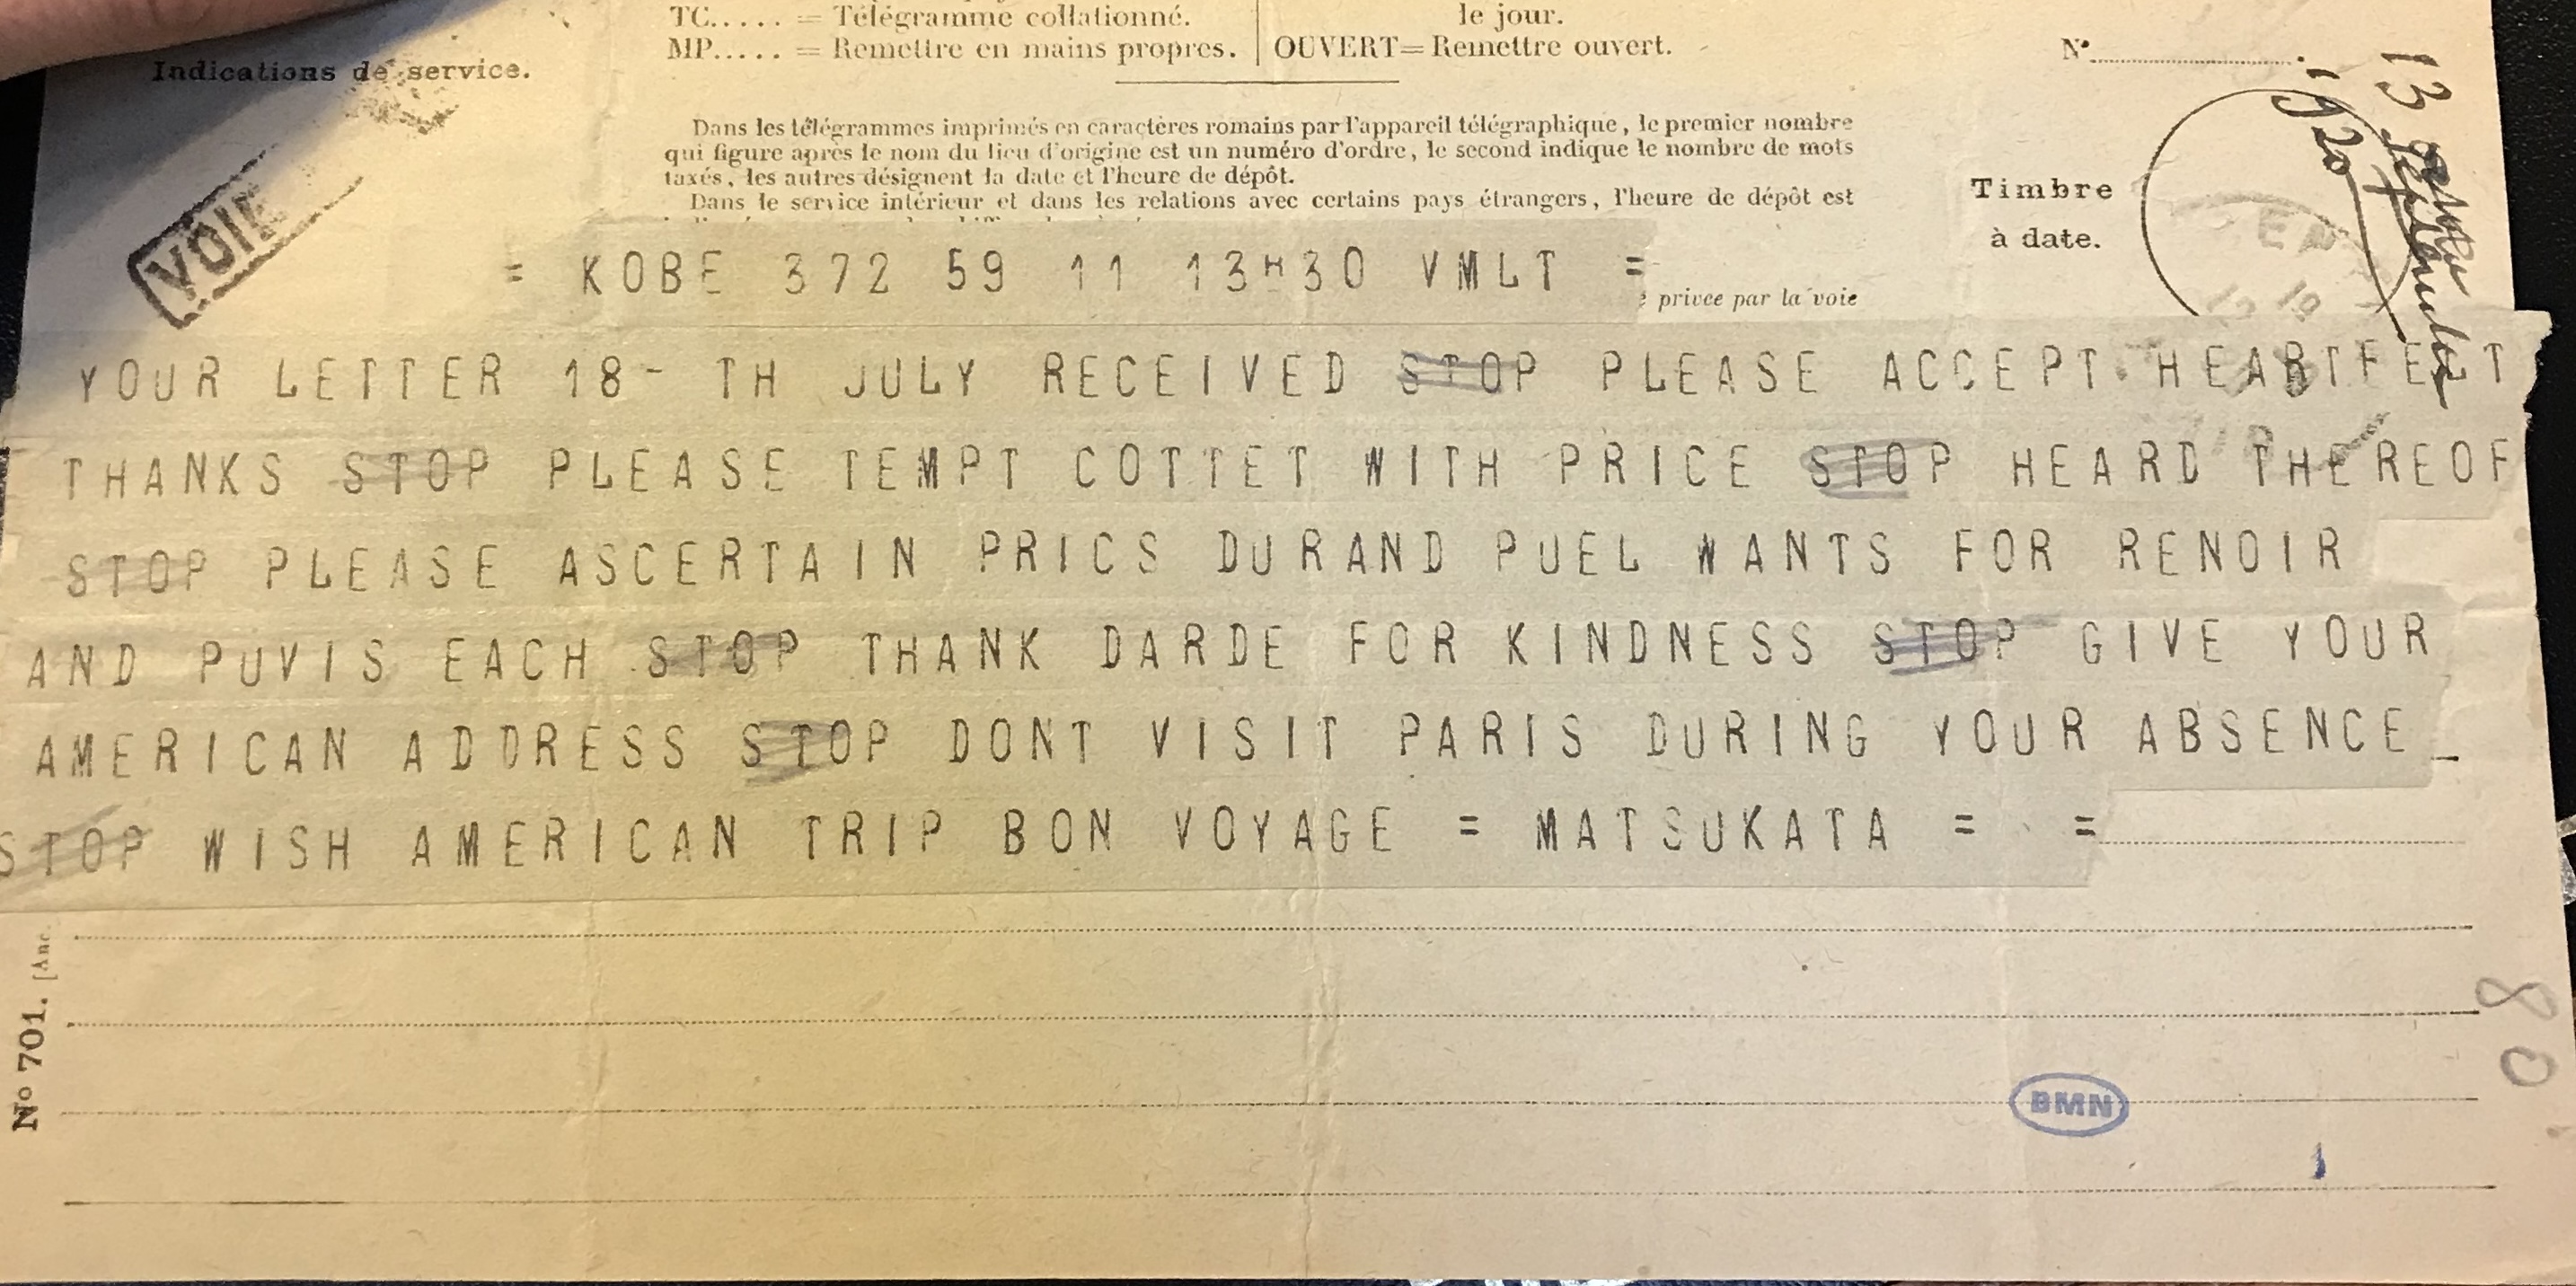 TC..... = Télégramme collationné.
MP..... = Remettre en mains propres.
le jour.
OUVERT = Remettre ouvert.
Indications de service.
N°
13 septembre
1920
Dans les télégrammes imprimés en caractères romains par l'appareil télégraphique, le premier nombre
qui figure après le nom du lieu d'origine est un numéro d'ordre, le second indique le nombre de mots
taxés, les autres désignent la date et l'heure de dépôt.
Dans le service intérieur et dans les relations avec certains pays étrangers, l'heure de dépôt est
VOIE
Timbre
à date.
= KOBE 372 59 11 13H30 VMLT =
privée par la voie
YOUR LETTER 18- TH JULY RECEIVED STOP PLEASE ACCEPT HEARTFELT
THANKS STOP PLEASE TEMPT COTTET WITH PRICE STOP HEARD THEREOF
STOP PLEASE ASCERTAIN PRICS DURAND PUEL WANTS FOR RENOIR
AND PUVIS EACH STOP THANK DARDE FOR KINDNESS STOP GIVE YOUR
AMERICAN ADDRESS STOP DONT VISIT PARIS DURING YOUR ABSENCE
STOP WISH AMERICAN TRIP BON VOYAGE = MATSUKATA = =
N° 701. [Anc.
80
BMN